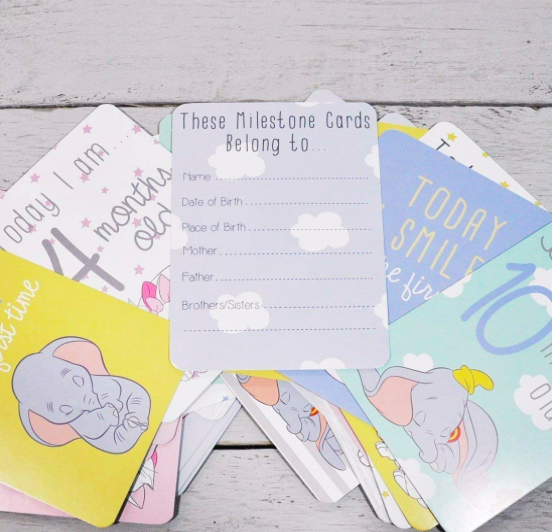 These Milestone Cards
Belong to...
Name
Date of Birth
Place of Birth
Mother
Father
Brothers/Sisters
Today I am...
4 months
old
first time
TODAY
I SMILE
first
10
old